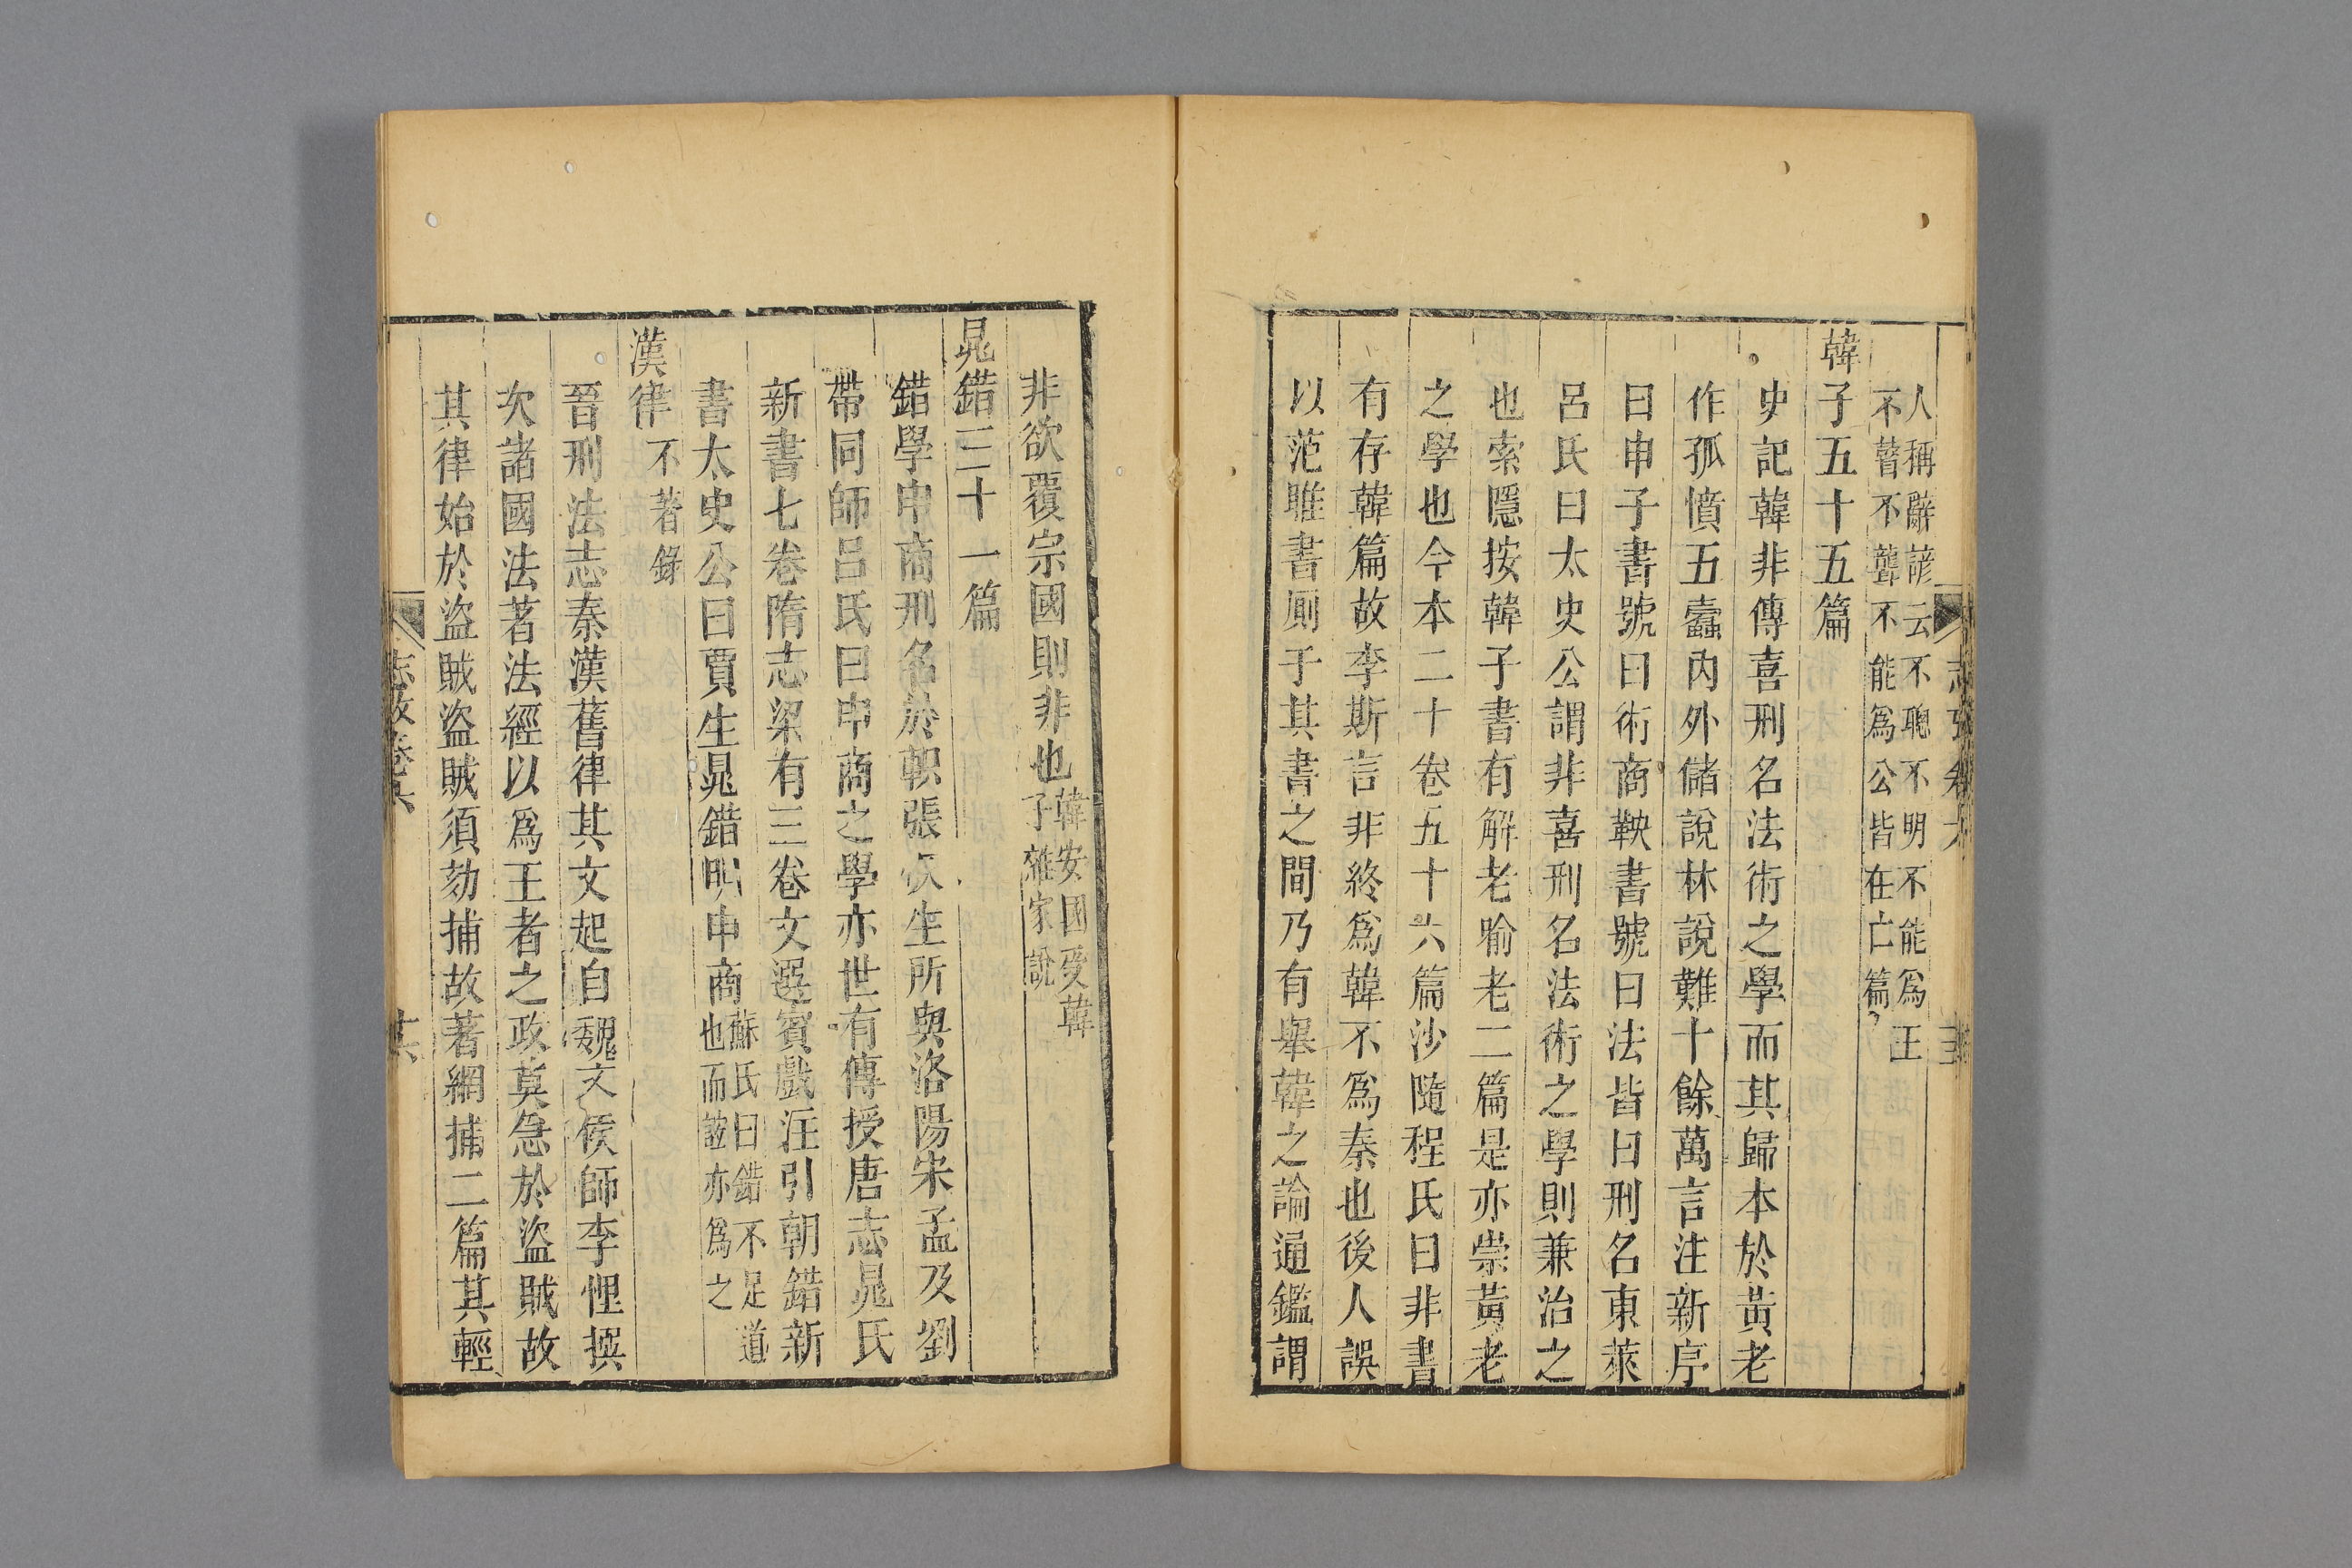 人稱辭諺云不聰不明不能爲王
不瞽不聾不能爲公皆在亡篇
韓子五十五篇
史記韓非傳喜刑名法術之學而其歸本於黃老
作孤憤五蠹內外儲說林說難十餘萬言注新序
曰申子書號曰術商鞅書號曰法皆曰刑名東萊
呂氏曰太史公謂非喜刑名法術之學則兼治之
也索隱按韓子書有解老喻老二篇是亦崇黃老
之學也今本二十卷五十六篇沙隨程氏曰非書
有存韓篇故李斯言非終爲韓不爲秦也後人誤
以范雎書廁于其書之間乃有舉韓之論通鑑謂
非欲覆宗國則非也
韓安國受韓
子雜家說
晁錯三十一篇
錯學申商刑名於軹張恢生所與洛陽宋孟及劉
帶同師呂氏曰申商之學亦世有傳授唐志晁氏
新書七卷隋志梁有三卷文選賓戲注引朝錯新
書太史公曰賈生晁錯明申商
蘇氏曰錯不足道
也而誼亦爲之
漢律不著錄
晉刑法志秦漢舊律其文起自魏文侯師李悝撰
次諸國法著法經以爲王者之政莫急於盜賊故
其律始於盜賊盜賊須劾捕故著網捕二篇其輕